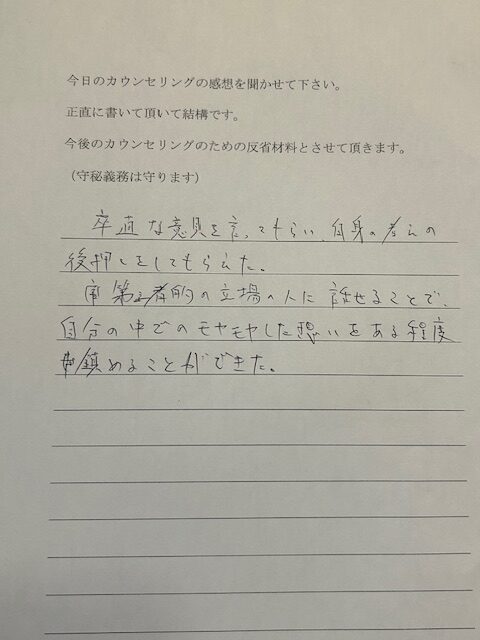 今日のカウンセリングの感想を聞かせて下さい。
正直に書いて頂いて結構です。
今後のカウンセリングのための反省材料とさせて頂きます。
（守秘義務は守ります）
卒直な意見を言ってもらい、自身の考えの
後押しをしてもらえた。
第三者的の立場の人に話せることで、
自分の中でのモヤモヤした想いをある程度
鎮めることができた。